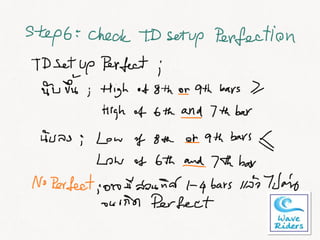 Step6: check TD setup Perfection
TD setup Perfect ;
นับขึ้น ; High of 8th or 9th bars ≥
High of 6th and 7th bar
นับลง ; Low of 8th or 9th bars ≤
Low of 6th and 7th bar
No Perfect ; อาจมีสวนทิศ 1-4 bars แล้วไปต่อ
จนเกิด Perfect
Wave
Riders